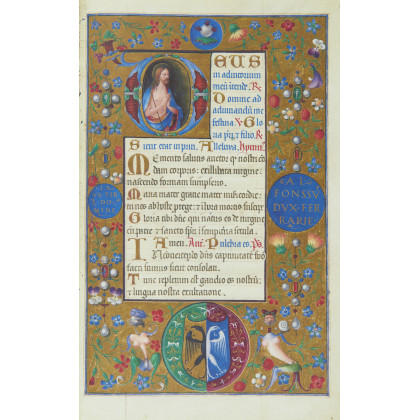 DEUS
in adiutorium
meū intende. R.
Domine ad
adiuuandū me
festina. V. Glo
ria pr̄i et filio et
Sicut erat in prin. Alleluia. Hymn.
Memento salutis auctor q nostri qdō
dam corporis: ex illibata uirgine
nascendo formam sumpseris.
Maria mater gratie mater misericordie:
tu nos ab hoste protege: et hora mortis suscipe
Gloria tibi dn̄e qui natus es de uirgine
cū patre et sancto spū: in sempiterna secula.
Amen. Añ. Pulchra es. ps.
In conuertendo dn̄s captiuitatē syo
facti sumus sicut consolati.
Tunc repletum est gaudio os nostrū:
et lingua nostra exultatione.
AL
FONSSV
DVX FER
RARIE